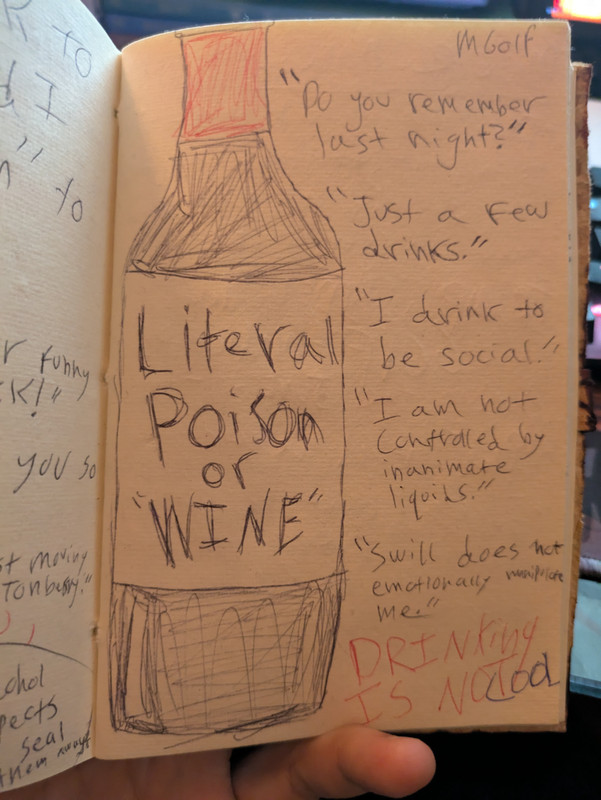 R to
d I
n" yo
r funny
CK!"
you so
st moving
Tonberry."
cohol
pects
seal
them away!
MGolf
"Do you remember
last night?"
"Just a few
drinks."
"I drink to
be social."
"I am not
controlled by
inanimate
liquids."
"Swill does not
emotionally manipulate
me."
DRINking
IS NOT Cool
Literal
Poison
or
"WINE"